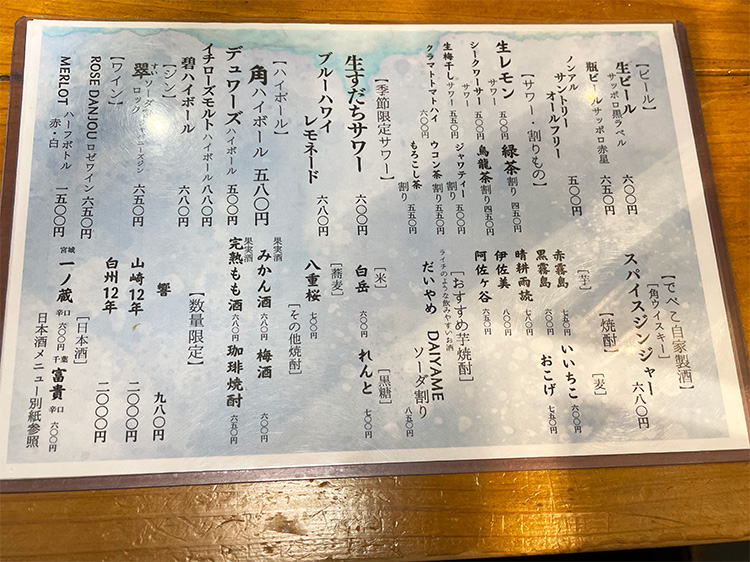 [ビール]
生ビール 六〇〇円
サッポロ黒ラベル
瓶ビール サッポロ赤星 六五〇円
ノンアル
サントリー
オールフリー 五〇〇円
[サワー・割りもの]
生レモン サワー 五〇〇円
シークワーサー サワー 五五〇円
生梅干しサワー 五五〇円
クラマトトマトハイ 六〇〇円
緑茶割り 四五〇円
烏龍茶割り 四五〇円
ジャワティー割り 五五〇円
ウコン茶割り 五五〇円
もろこし茶割り 五五〇円
[季節限定サワー]
生すだちサワー 六〇〇円
ブルーハワイ
レモネード 六八〇円
[ハイボール]
角ハイボール 五八〇円
デュワーズハイボール 五〇〇円
イチローズモルトハイボール 八八〇円
碧ハイボール 六八〇円
[ジン]
翠
すい
ソーダ
ロック 六五〇円
[ワイン]
ROSE DANJOU ロゼワイン 六五〇円
MERLOT ハーフボトル
赤・白 一五〇〇円
[でべこ自家製酒]
[角ウイスキー]
スパイスジンジャー 六八〇円
[焼酎]
[芋]
赤霧島 七五〇円
黒霧島 五五〇円
晴耕雨読 六五〇円
伊佐美 八〇〇円
阿佐ヶ谷 六五〇円
[麦]
いいちこ 六〇〇円
おこげ 七〇〇円
[おすすめ芋焼酎]
ライチのような飲みやすいお酒
だいやめ DAIYAME
ソーダ割り 八五〇円
[米]
白岳 六〇〇円
[黒糖]
れんと 七〇〇円
[蕎麦]
八重桜 七〇〇円
[その他焼酎]
果実酒 みかん酒 六八〇円
梅酒 六八〇円
果実酒 完熟もも酒 六八〇円
珈琲焼酎 六五〇円
[数量限定]
響 九八〇円
山崎12年 二〇〇〇円
白州12年 二〇〇〇円
[日本酒]
宮城 一ノ蔵 辛口 六〇〇円
千葉 富貴 辛口 六〇〇円
日本酒メニュー別紙参照